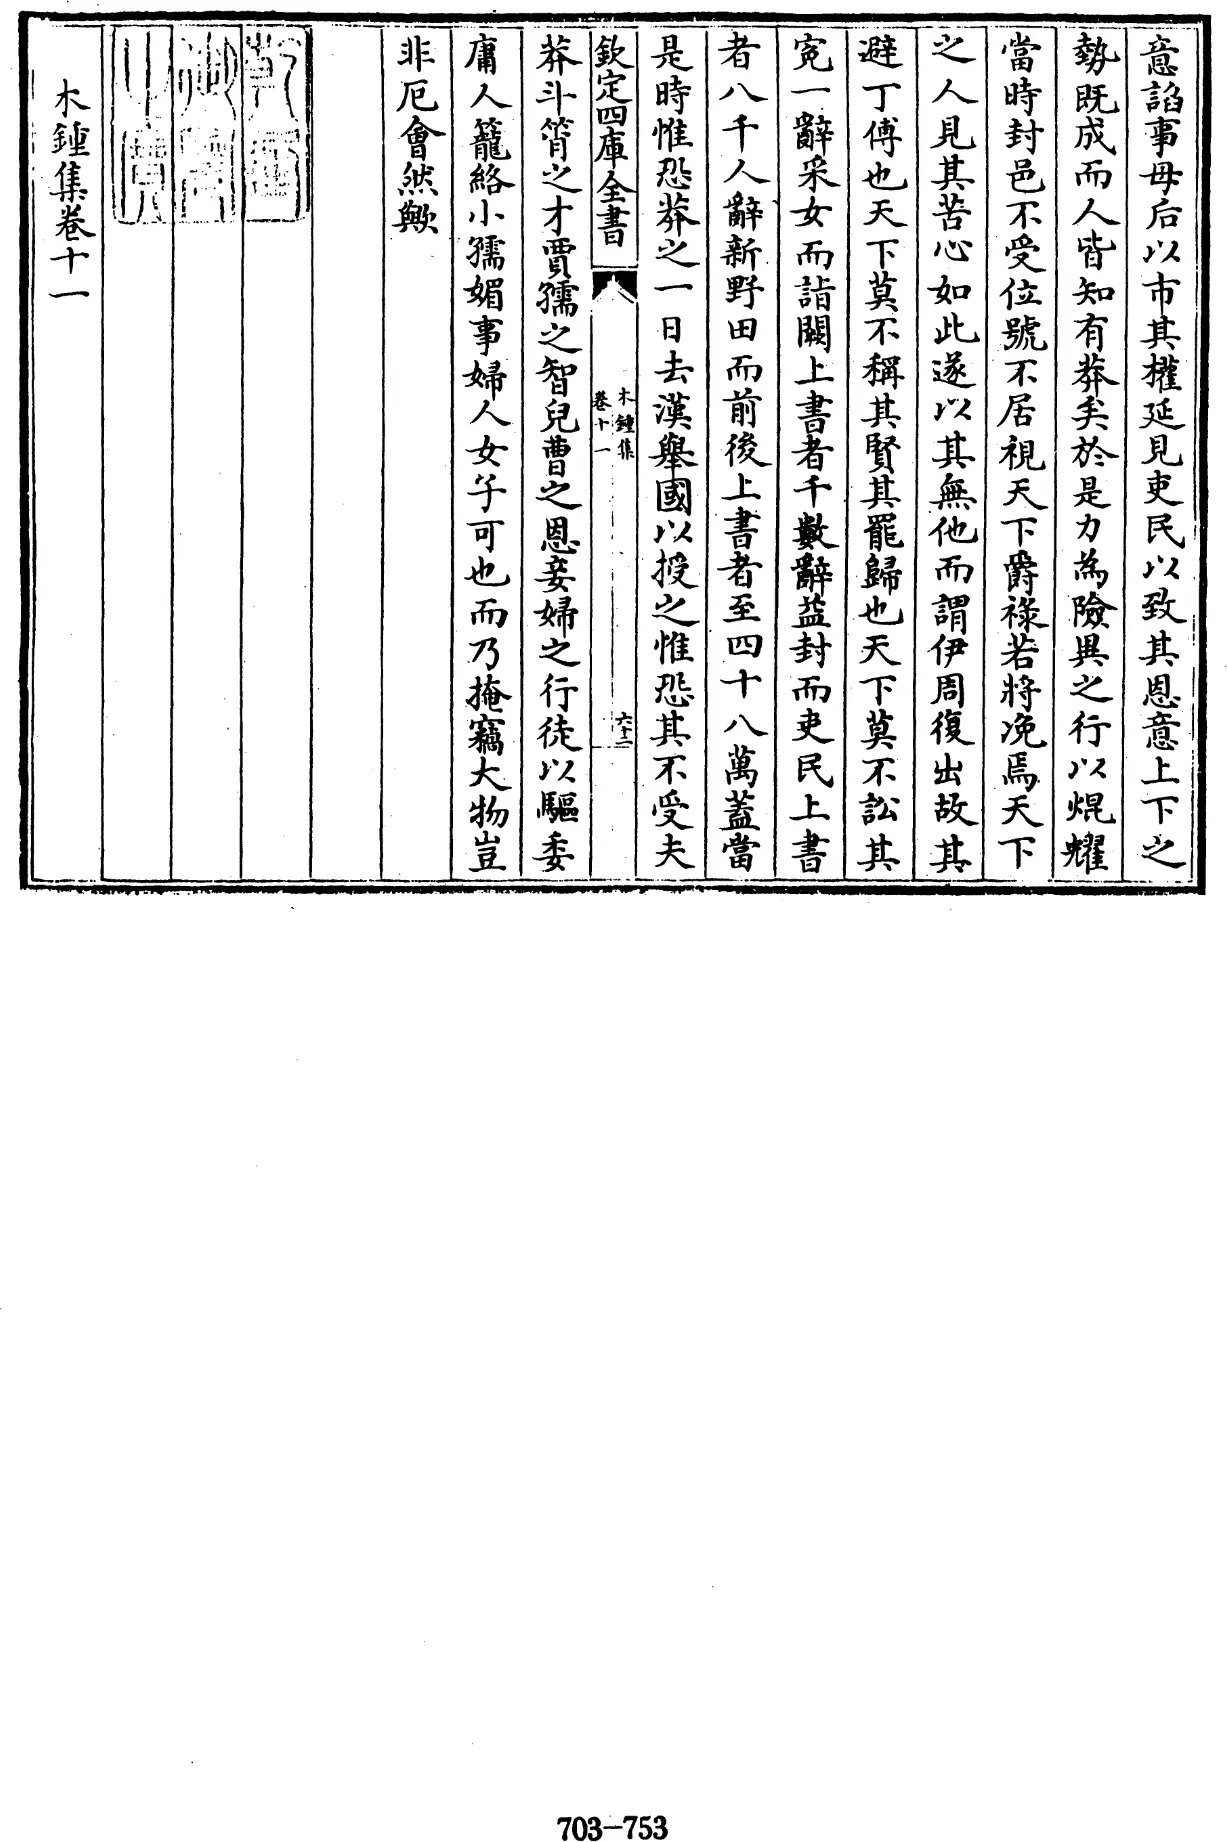 意諂事母后以市其權延見吏民以致其恩意上下之
勢既成而人皆知有莽矣於是力為險異之行以焜耀
當時封邑不受位號不居視天下爵祿若將凂焉天下
之人見其苦心如此遂以其無他而謂伊周復出故其
避丁傅也天下莫不稱其賢其罷歸也天下莫不訟其
寃一辭采女而詣闕上書者千數辭益封而吏民上書
者八千人辭新野田而前後上書者至四十八萬蓋當
是時惟恐莽之一日去漢舉國以授之惟恐其不受夫
欽定四庫全書
木鍾集
卷十一
六十二
莽斗筲之才賈孺之智兒曹之恩妾婦之行徒以驅委
庸人籠絡小孺媚事婦人女子可也而乃掩竊大物豈
非厄會然歟
木鍾集卷十一
703-753